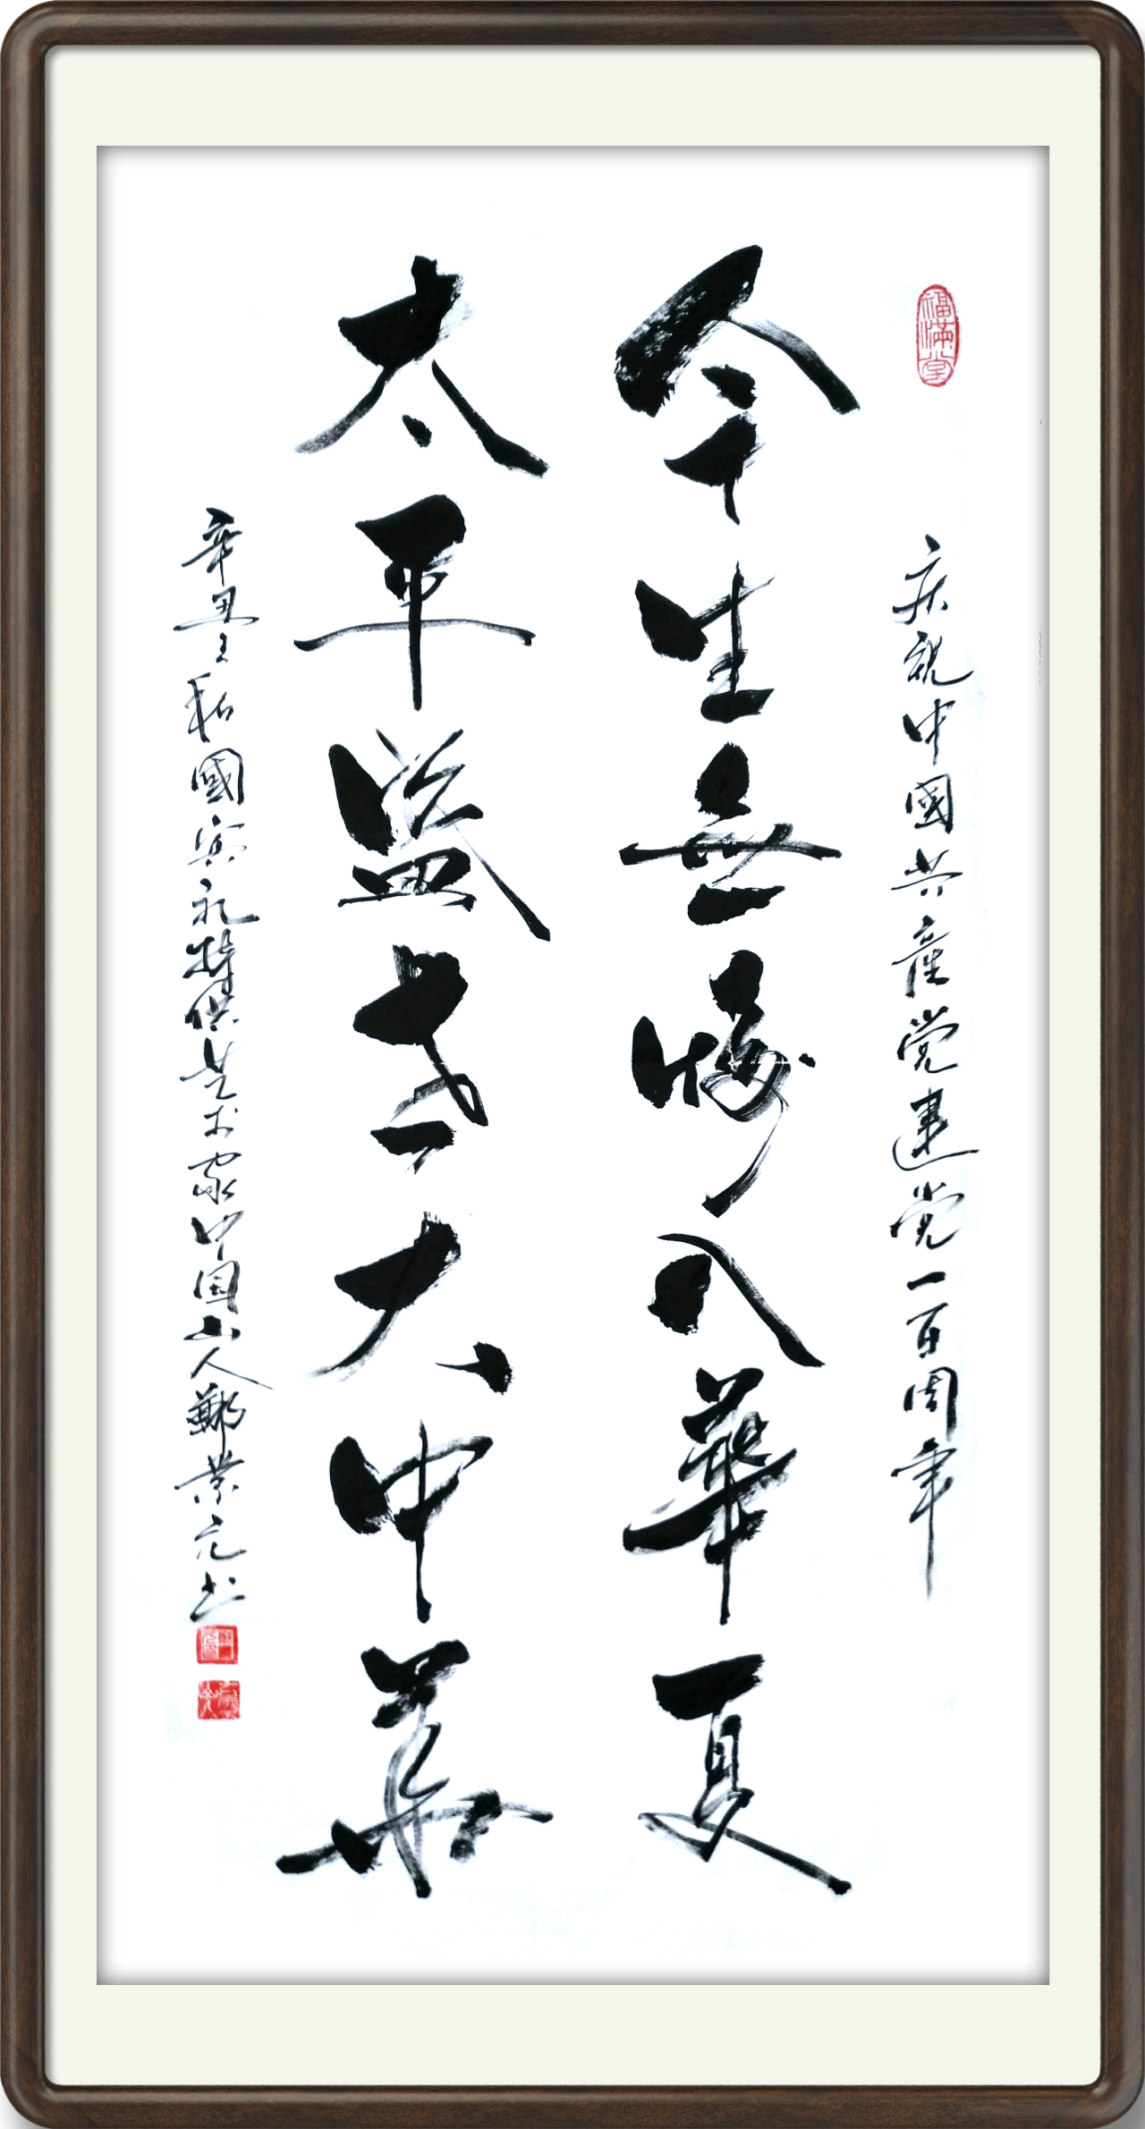 福满堂
庆祝中國共產党建党一百周年
今生無悔入華夏
太平盛世大中華
辛丑之秋國宾礼特供艺术家中国山人鄭業元书